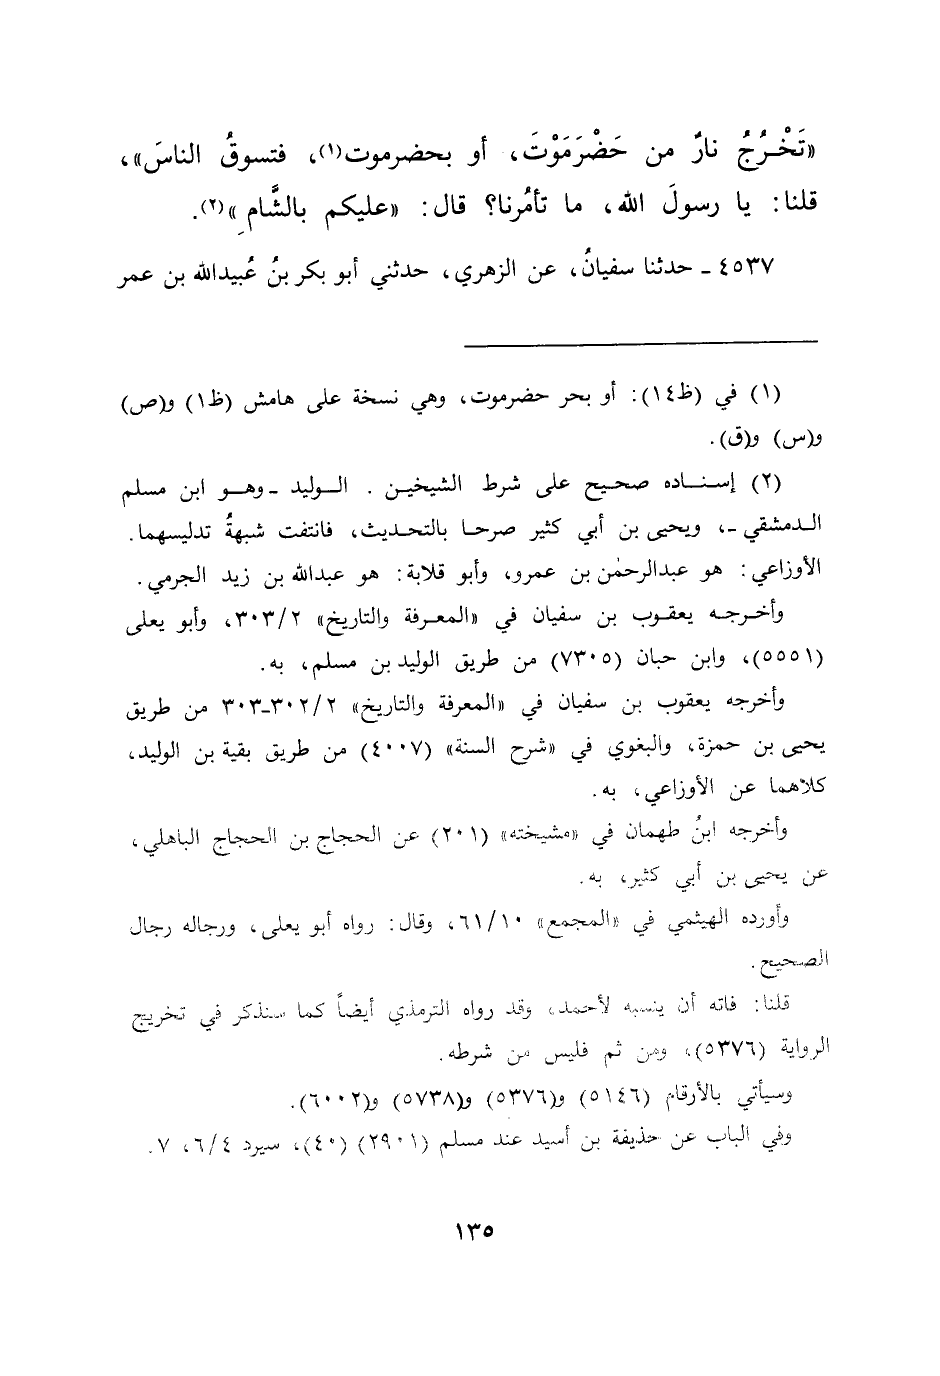 «تَخْرُجُ نارٌ من حَضْرَمَوْتَ، أو بحضرموت(١)، فتسوقُ الناسَ»،
قلنا: يا رسولَ الله، ما تأمُرنا؟ قال: «عليكم بالشَّامِ»(٢).
٤٥٣٧ ـ حدثنا سفيانُ، عن الزهري، حدثني أبو بكر بنُ عُبيدالله بن عمر
(١) في (ظ١٤): أو بحر حضرموت، وهي نسخة على هامش (ظ١) و(ص)
و(س) و(ق).
(٢) إسناده صحيح على شرط الشيخين. الوليد ـ وهو ابن مسلم
الدمشقي ـ، ويحيى بن أبي كثير صرحا بالتحديث، فانتفت شبهةُ تدليسهما.
الأوزاعي: هو عبدالرحمٰن بن عمرو، وأبو قلابة: هو عبدالله بن زيد الجرمي.
وأخرجه يعقوب بن سفيان في «المعرفة والتاريخ» ٣٠٣/٢، وأبو يعلى
(٥٥٥١)، وابن حبان (٧٣٠٥) من طريق الوليد بن مسلم، به.
وأخرجه يعقوب بن سفيان في «المعرفة والتاريخ» ٣٠٢/٢ـ٣٠٣ من طريق
يحيى بن حمزة، والبغوي في «شرح السنة» (٤٠٠٧) من طريق بقية بن الوليد،
كلاهما عن الأوزاعي، به.
وأخرجه ابنُ طهمان في «مشيخته» (٢٠١) عن الحجاج بن الحجاج الباهلي،
عن يحيى بن أبي كثير، به.
وأورده الهيثمي في «المجمع» ٦١/١٠، وقال: رواه أبو يعلى، ورجاله رجال
الصحيح.
قلنا: فاته أن ينسبه لأحمد، وقد رواه الترمذي أيضاً كما سنذكر في تخريج
الرواية (٥٣٧٦)، ومن ثم فليس من شرطه.
وسيأتي بالأرقام (٥١٤٦) و(٥٣٧٦) و(٥٧٣٨) و(٦٠٠٢).
وفي الباب عن حذيفة بن أسيد عند مسلم (٢٩٠١) (٤٠)، سيرد ٦/٤، ٧.
١٣٥